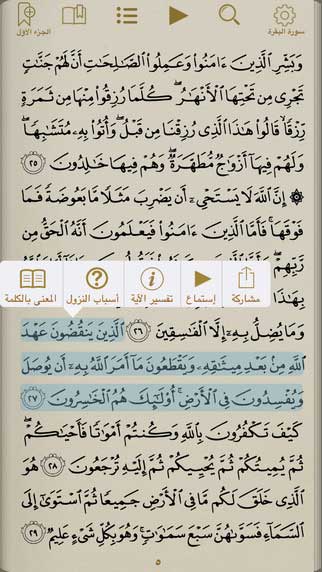 الجزء الأول
سورة البقرة
وَبَشِّرِ ٱلَّذِينَ ءَامَنُوا۟ وَعَمِلُوا۟ ٱلصَّـٰلِحَـٰتِ أَنَّ لَهُمْ جَنَّـٰتٍ
تَجْرِى مِن تَحْتِهَا ٱلْأَنْهَـٰرُ ۖ كُلَّمَا رُزِقُوا۟ مِنْهَا مِن ثَمَرَةٍ
رِّزْقًا ۙ قَالُوا۟ هَـٰذَا ٱلَّذِى رُزِقْنَا مِن قَبْلُ ۖ وَأُتُوا۟ بِهِۦ مُتَشَـٰبِهًا ۖ
وَلَهُمْ فِيهَآ أَزْوَٰجٌ مُّطَهَّرَةٌ ۖ وَهُمْ فِيهَا خَـٰلِدُونَ ٢٥
۞ إِنَّ ٱللَّهَ لَا يَسْتَحْىِۦٓ أَن يَضْرِبَ مَثَلًا مَّا بَعُوضَةً فَمَا
فَوْقَهَا ۚ فَأَمَّا ٱلَّذِينَ ءَامَنُوا۟ فَيَعْلَمُونَ أَنَّهُ ٱلْحَقُّ مِن
رَّبِّهِمْ
مشاركة
إستماع
تفسير الآية
أسباب النزول
المعنى بالكلمة
بِهَـٰذَا
وَمَا يُضِلُّ بِهِۦٓ إِلَّا ٱلْفَـٰسِقِينَ ٢٦ ٱلَّذِينَ يَنقُضُونَ عَهْدَ
ٱللَّهِ مِنۢ بَعْدِ مِيثَـٰقِهِۦ وَيَقْطَعُونَ مَآ أَمَرَ ٱللَّهُ بِهِۦٓ أَن يُوصَلَ
وَيُفْسِدُونَ فِى ٱلْأَرْضِ ۚ أُو۟لَـٰٓئِكَ هُمُ ٱلْخَـٰسِرُونَ ٢٧
كَيْفَ تَكْفُرُونَ بِٱللَّهِ وَكُنتُمْ أَمْوَٰتًا فَأَحْيَـٰكُمْ ۖ
ثُمَّ يُمِيتُكُمْ ثُمَّ يُحْيِيكُمْ ثُمَّ إِلَيْهِ تُرْجَعُونَ ٢٨ هُوَ
ٱلَّذِى خَلَقَ لَكُم مَّا فِى ٱلْأَرْضِ جَمِيعًا ثُمَّ ٱسْتَوَىٰٓ إِلَى
ٱلسَّمَآءِ فَسَوَّىٰهُنَّ سَبْعَ سَمَـٰوَٰتٍ ۚ وَهُوَ بِكُلِّ شَىْءٍ عَلِيمٌ ٢٩
٥